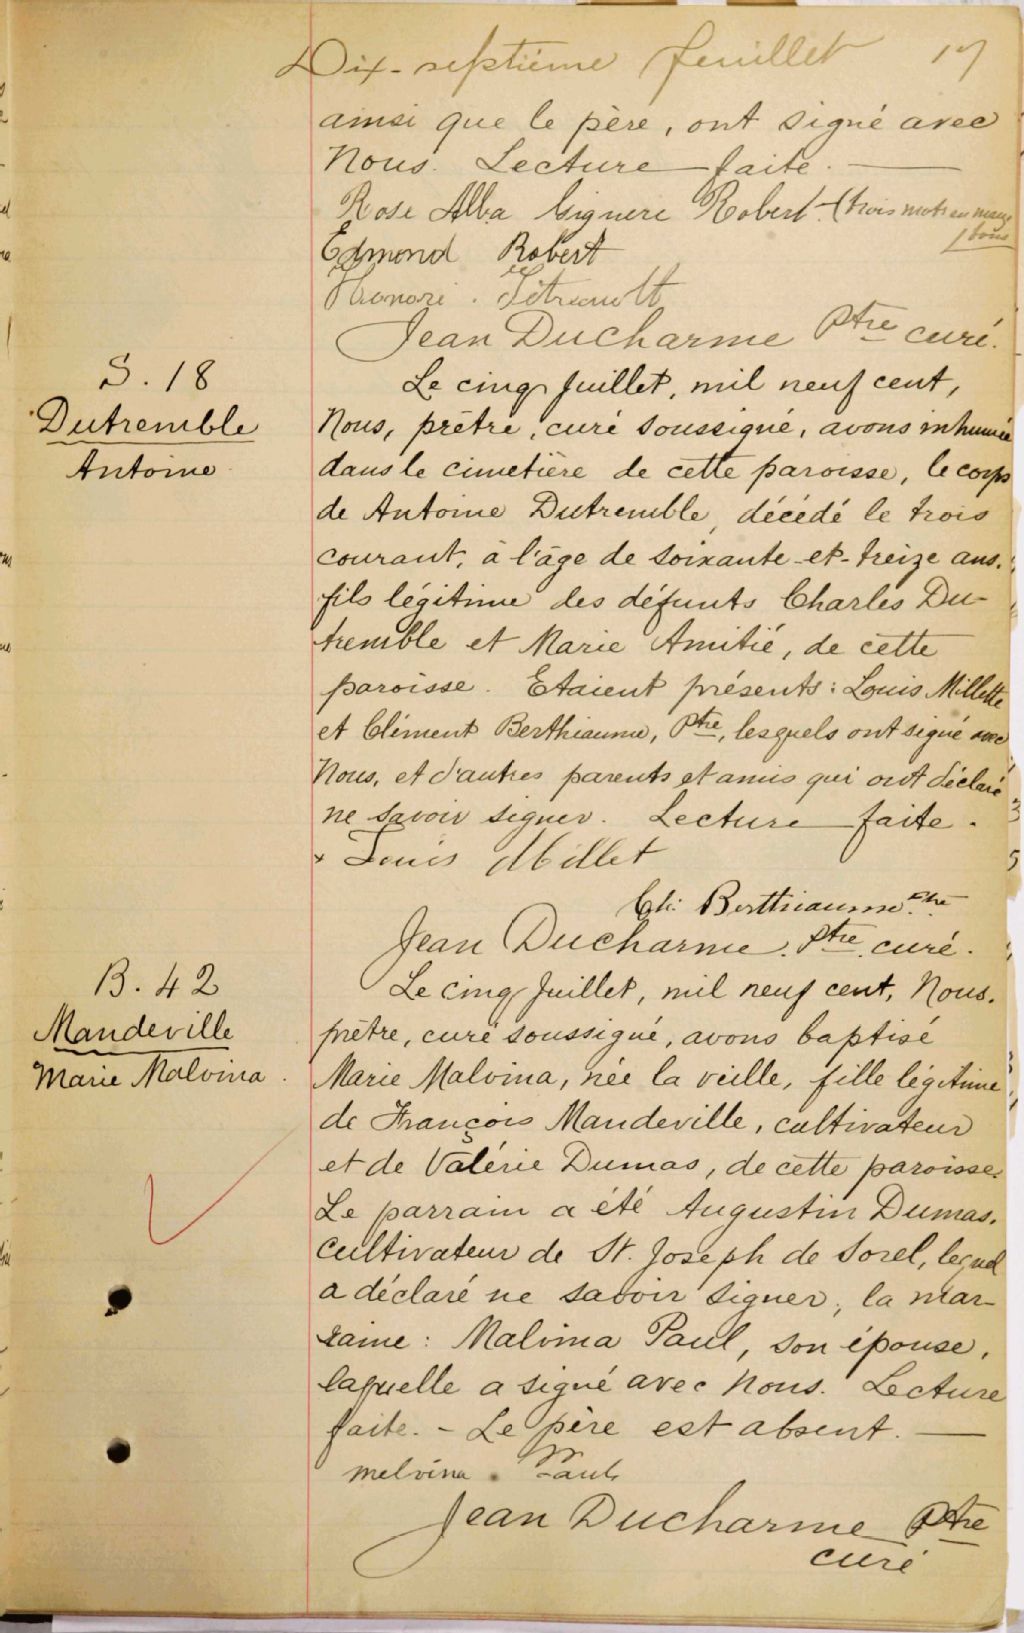 Dix-septième feuillet 17
ainsi que le père, ont signé avec
Nous. Lecture faite.
Rose Alba Robert (trois mots en marge
bons
Edmond Robert
Honoré. Tétreault
Jean Ducharme Ptre curé.
S. 18
Dutremble
Antoine
Le cinq Juillet, mil neuf cent,
Nous, prêtre, curé soussigné, avons inhumé
dans le cimetière de cette paroisse, le corps
de Antoine Dutremble, décédé le trois
courant, à l'âge de soixante-et-treize ans.
fils légitime des défunts Charles Du-
tremble et Marie Amitié, de cette
paroisse. Etaient présents: Louis Millette
et Clément Berthiaume, Ptre, lesquels ont signé avec
Nous, et d'autres parents et amis qui ont déclaré
ne savoir signer. Lecture faite.
x Louis Millet
Cl: Berthiaume Ptre
Jean Ducharme. Ptre curé.
B. 42
Mandeville
Marie Malvina.
Le cinq Juillet, mil neuf cent, Nous.
prêtre, curé soussigné, avons baptisé
Marie Malvina, née la veille, fille légitime
de François Mandeville, cultivateur
et de Valérie Dumas, de cette paroisse.
Le parrain a été Augustin Dumas.
cultivateur de St. Joseph de Sorel, lequel
a déclaré ne savoir signer; la mar-
raine: Malvina Paul, son épouse,
laquelle a signé avec Nous. Lecture
faite. - Le père est absent.
melvina. Paul
Jean Ducharme Ptre
curé